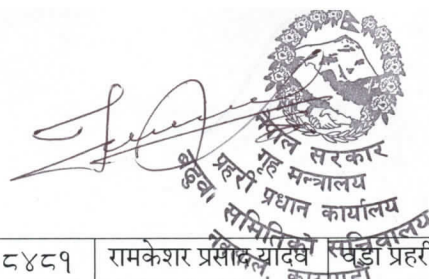 नेपाल सरकार
गृह मन्त्रालय
प्रहरी प्रधान कार्यालय
समितिको सचिवालय
८४८१ रामकेशर प्रसाद यादव वडा प्रहरी